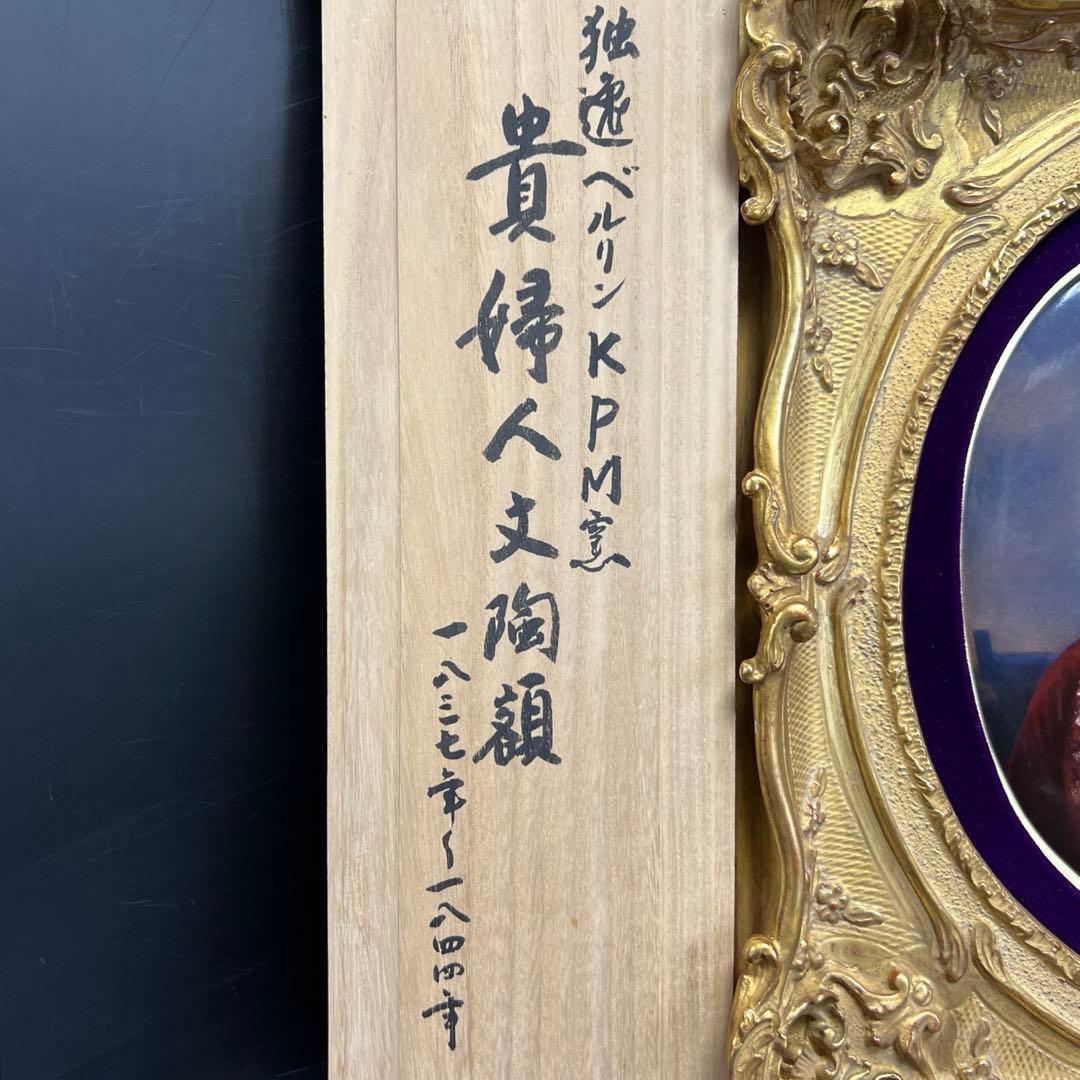 独逸ベルリンKPM窯
貴婦人文陶額
一八三七年〜一八四四年